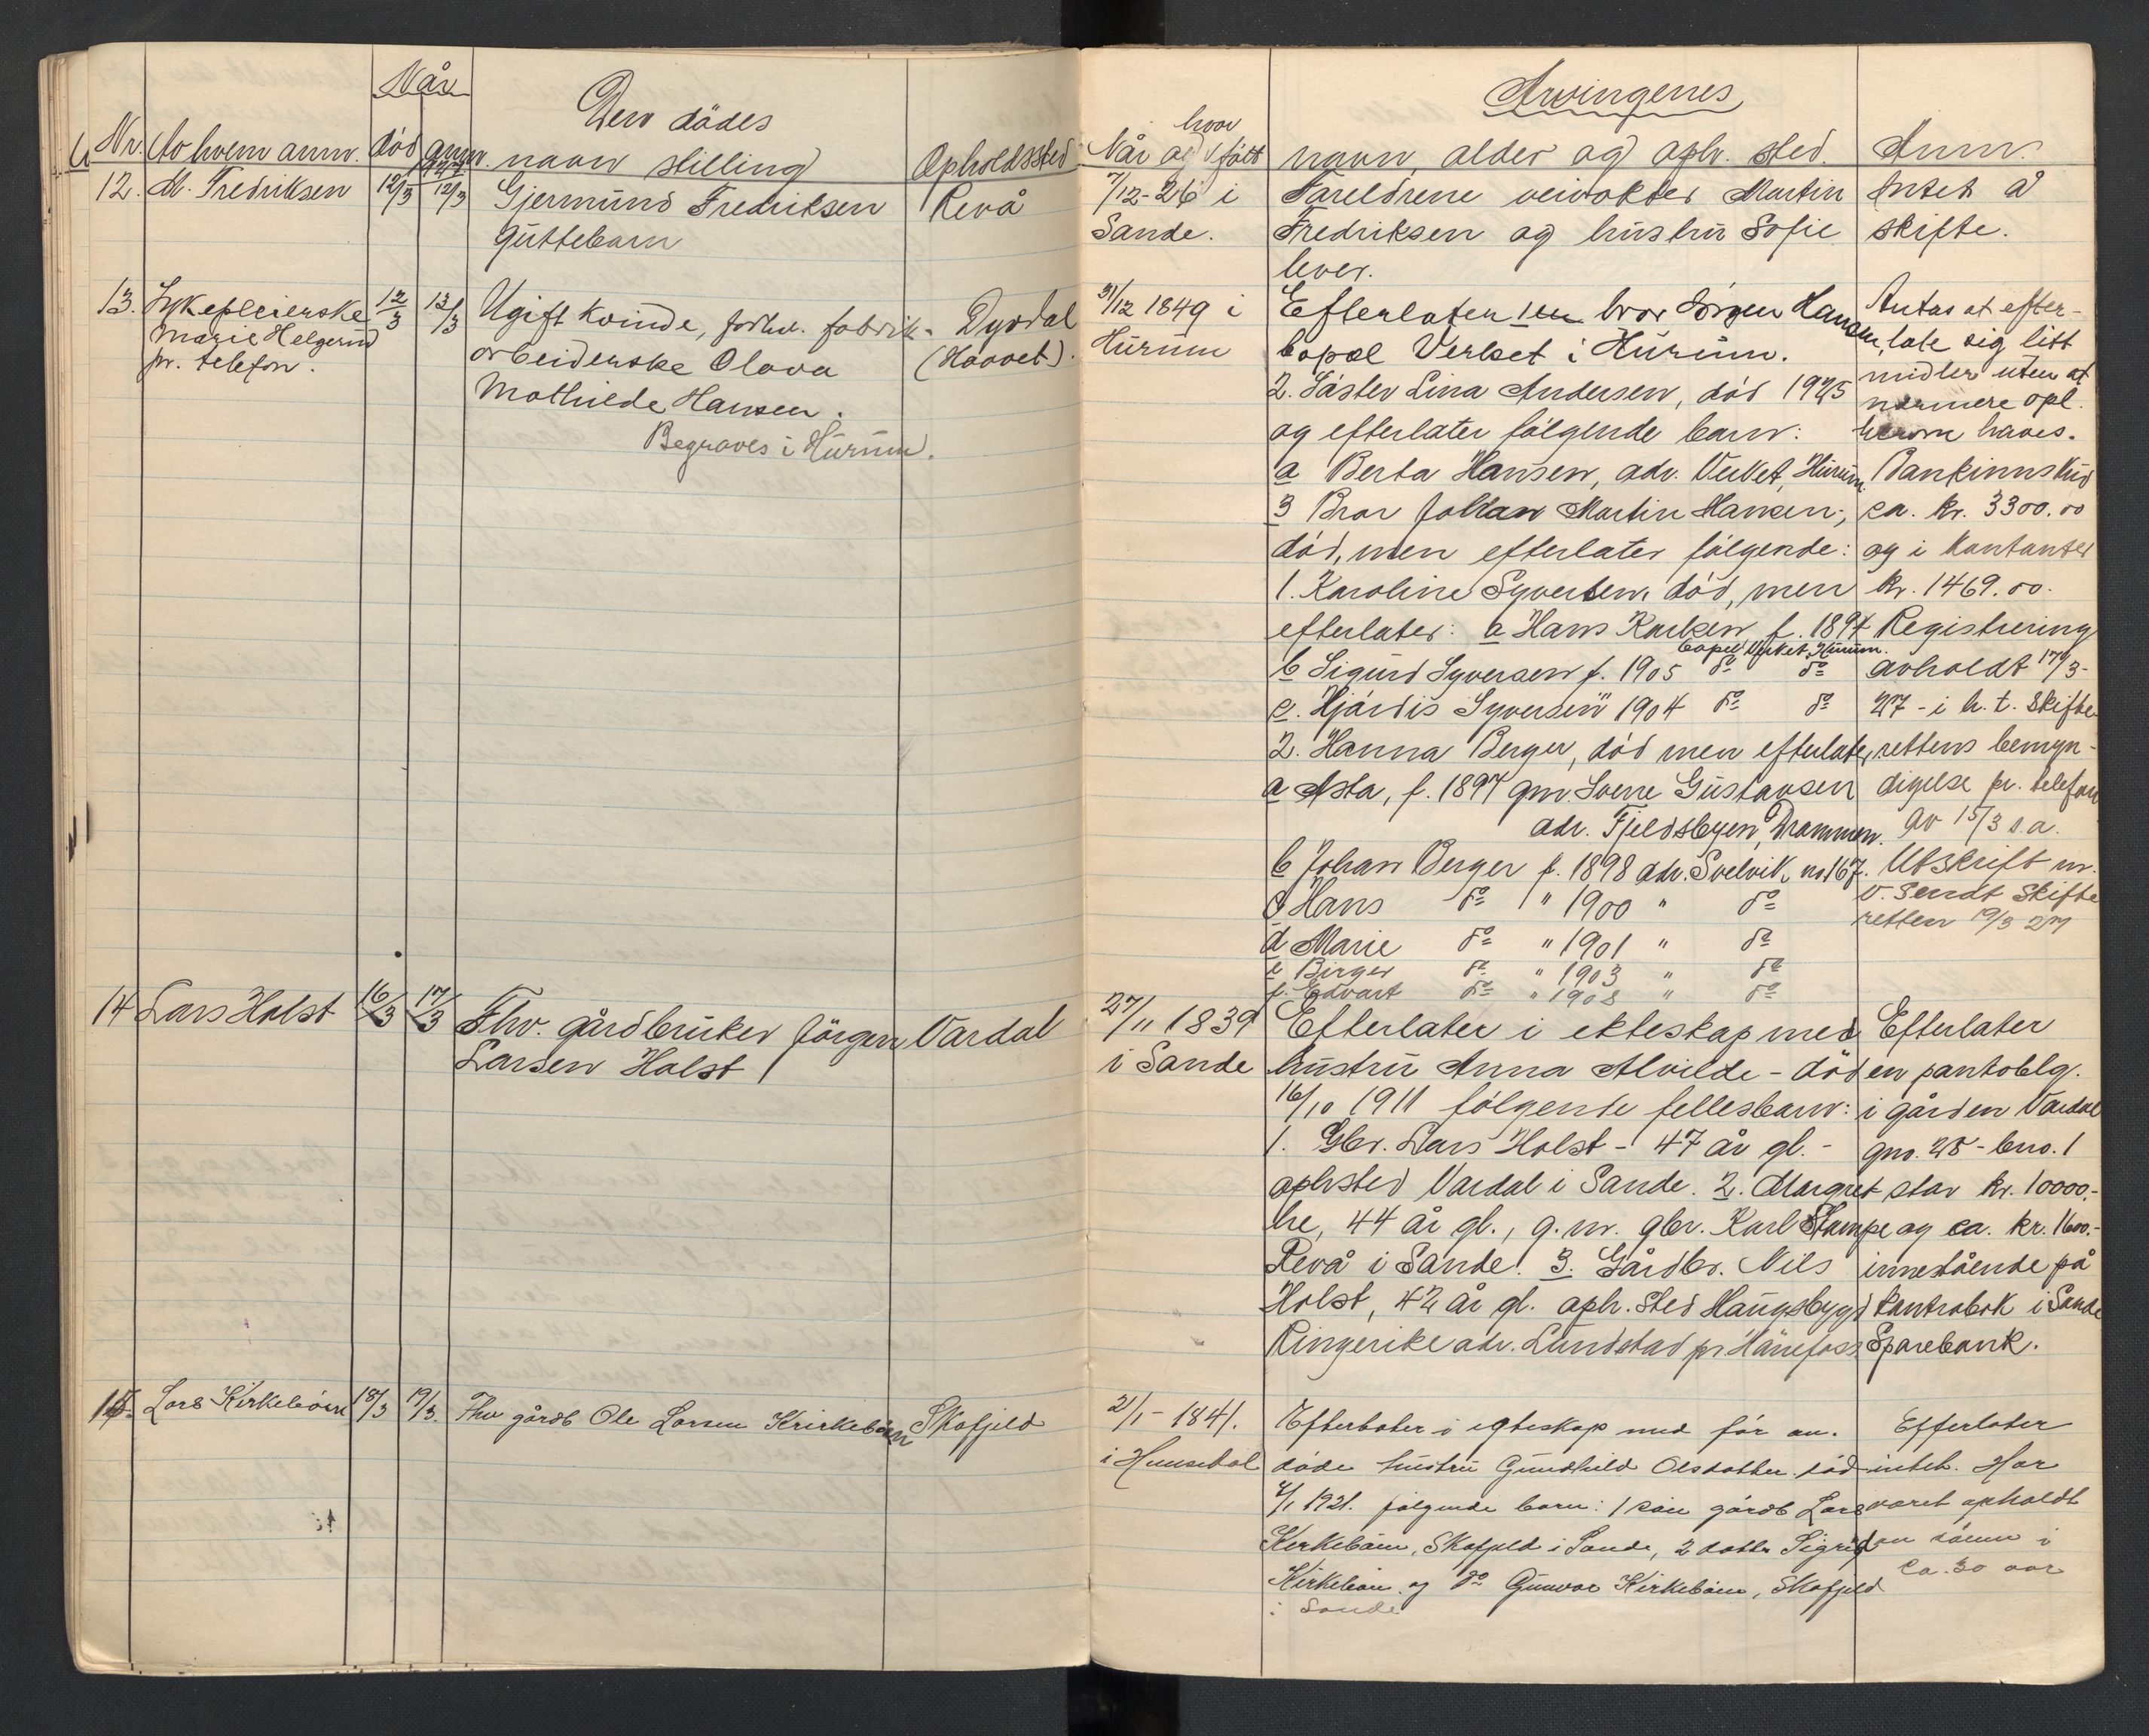 Når
Den dödes
Nr. Av hvem anm. död anm. navn stilling Opholdssted
1927
12. M. Fredriksen 12/3 12/3 Gjermund Fredriksen Revå
Guttebarn
13. Sykepleierske 12/3 13/3 Ugift kvinde, forhv. fabrik- Dyrdal
Marie Helgerud arbeiderske Olava (Haavet).
pr. telefon. Mathilde Hansen.
Begraves i Hurum.
14 Lars Holst 16/3 17/3 Fhv. gårdbruker Jörgen Vardal
Larsen Holst
15. Lars Kirkebøen 18/3 19/3. Fhv gårdb Ole Larsen Kirkebøen Skafjeld
Arvingenes
hvor
Når og födt navn, alder og oph. sted. Anm.
7/12-26 i Foreldrene veivokter Martin Intet å
Sande. Fredriksen og hustru Sofie skifte.
lever.
31/12 1849 i Efterlater 1 en bror Jörgen Hansen Antas at efter-
Hurum bopæl Verket i Hurum. late sig litt
2. Söster Lina Andersen, död 1925 midler uten at
og efterlater fölgende barn: nærmere opl.
a Berta Hansen, adr. Verket, Hurum. herom haves.
3 Bror Johan Martin Hansen, Bankinnskud
död, men efterlater fölgende: ca. kr. 3300.00
1. Karoline Syversen, död, men og i kontanter
efterlater: a Hans Karlsen f. 1894 kr. 1469.00.
bopel Verket, Hurum. Registrering
b Sigurd Syversen f. 1905 do do avholdt 17/3-
c. Hjördis Syversen " 1904 do do 27 - i h. t. skifte
2. Hanna Berger, död men efterlater, rettens bemyn-
a Asta, f. 1897 gm. Sverre Gustavsen digelse pr. telefon
adr. Fjeldsbyen, Drammen. av 15/3 s.a.
b Johan Berger f. 1898 adr. Svelvik no 167. Utskrift av
c Hans do " 1900 " do v. sendt Skifte
d Marie do " 1901 " do retten 19/3 27
e Birger do " 1903 " do
f. Edvart do " 1908 " do
27/11 1839 Efterlater i ekteskap med Efterlater
i Sande hustru Anna Alvilde - död en pantoblg.
16/10 1911 fölgende fellesbarn: i gården Vardal
1. Gbr. Lars Holst - 47 år gl. - gno. 28 - bno. 1
ophsted Vardal i Sande. 2. Margret stor kr. 10000.-
he, 44 år gl., g. m. gbr. Karl Stampe og ca. kr. 1600.-
Revå i Sande. 3. Gårdbr. Nils innestående på
Holst, 42 år gl. oph. sted Haugsbygd kontrabok i Sande
Ringerike adr. Lundstad pr Hönefoss Sparebank.
2/1 - 1841. Efterlater i egteskap med för av. Efterlater
i Hemsedal döde hustru Gundhild Olsdatter. död intet. Har
4/1 1921. fölgende barn: 1 sön gårdb Lars været opholdt
Kirkebøen, Skafjeld i Sande, 2 datter Sigrid av sönnen i
Kirkebøen og do Gunvor Kirkebøen, Skafjeld ca. 30 aar
i Sande